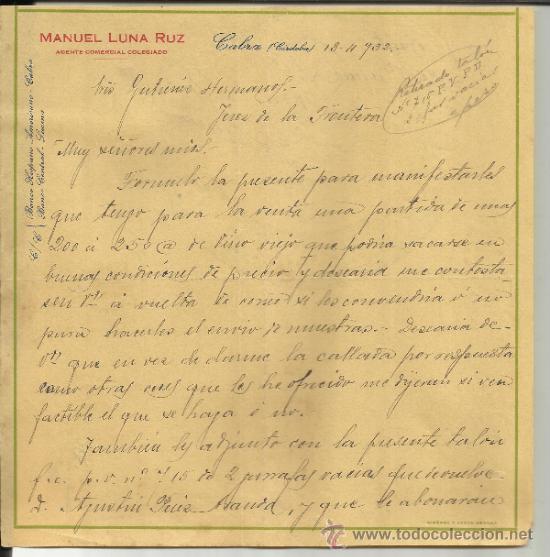 MANUEL LUNA RUZ
AGENTE COMERCIAL COLEGIADO
Cabra (Córdoba) 12-4-1932
Retirado talón
Nº 715 P.V. F.D.
2 vacias
C/C Banco Hispano Americano - Cabra
Banco Central - Lucena
Sres Gutierrez Hermanos.-
Jerez de la Frontera
Muy señores mios:
Formulo la presente para manifestarles
que tengo para la venta una partida de unas
200 á 250 @ de Vino viejo que podria sacarse en
buenas condiciones de precio y desearia me contesta-
sen Vds á vuelta de correo si les convendria ó no
para hacerles el envio de muestras.- Desearia de
Vds que en vez de darme la callada por respuesta
como otras veces que les he ofrecido me dijeran si ven
factible el que se haga ó no.
Tambien les adjunto con la presente talón
f.c. p.v. nº 715 de 2 jarrafas vacias que devuelve
D. Agustin Ruiz-Aranda, y que le abonaran
todocoleccion.net